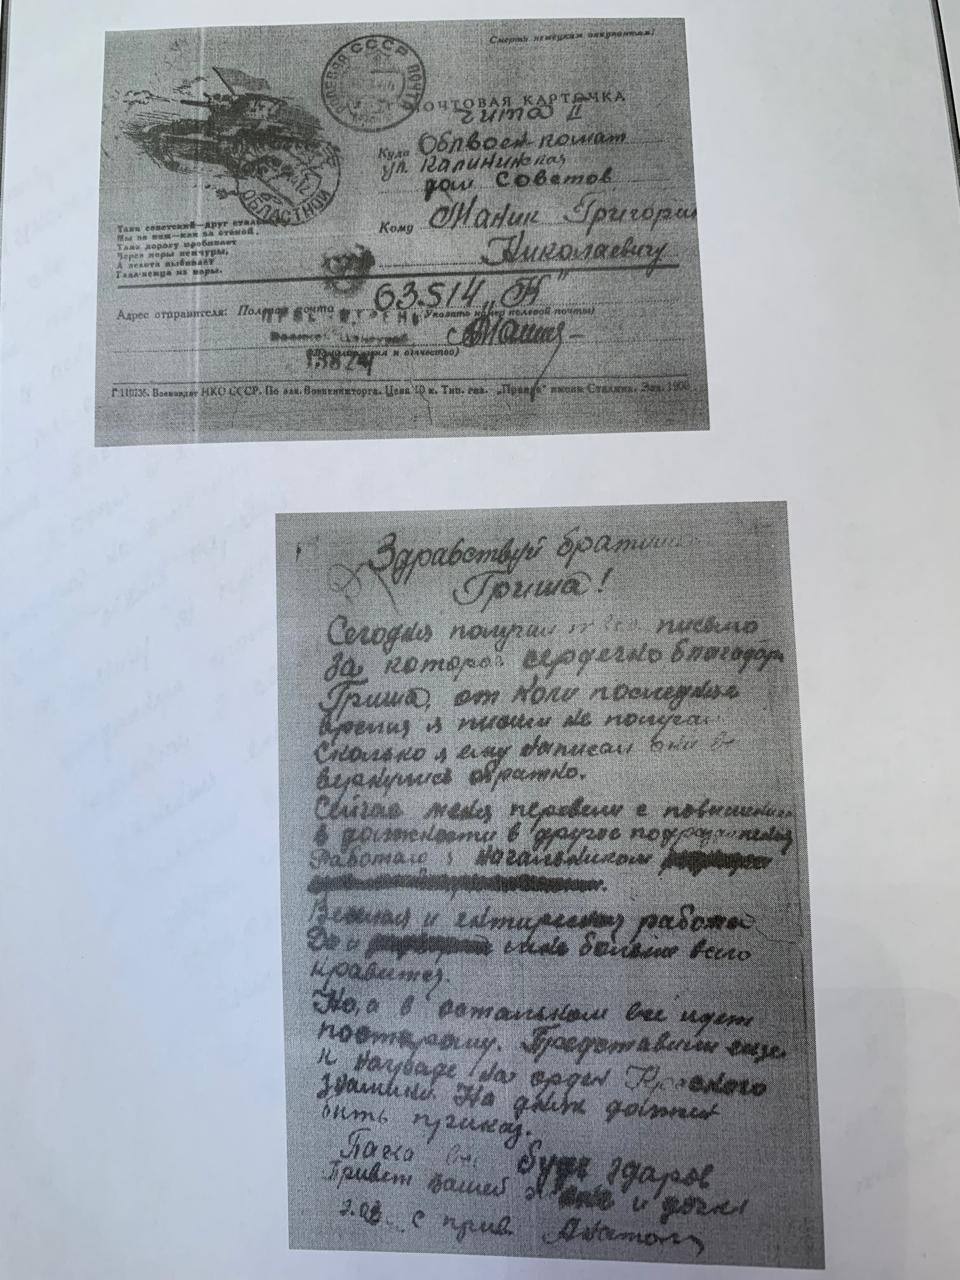 Смерть немецким оккупантам!
ПОЛЕВАЯ ПОЧТА
СССР
ПОЧТОВАЯ КАРТОЧКА
Чита II
Куда Облвоенкомат
ул Калининская
дом Советов
ОБЛАСТНОЙ
Кому Маник Григорию
Николаевичу
Танк советский—друг стальной,
Мы за ним—как за стеной.
Танк дорогу пробивает
Через норы
А пехота выбивает
из норы.
Адрес отправителя: Полевая почта 63514 „Н"
(Указать номер полевой почты)
(Фамилия имя и отчество)
13824
Г110236. Воениздат НКО СССР. По зак. Военкниготорга. Цена 10 к. Тип. газ. „Правда" имени Сталина. Зак. 1900
Здравствуй
Гриша!
Сегодня получил твое письмо
за которое сердечно благодарю
Гриша, от Коли последнее
время я писем не получаю
Сколько я ему написал они все
вернулись обратно.
Сейчас меня перевели с повышением
в должности в другое подразделение
Работаю начальником
и интересная работа
Да и мне больше всего
нравится.
Но, а в остальном все идет
постарому. Представили еще
к награде на орден Красного
Знамени. На днях должен
быть приказ.
Пока все будь здоров
Привет вашей жене и дочке
С прив Анатолий